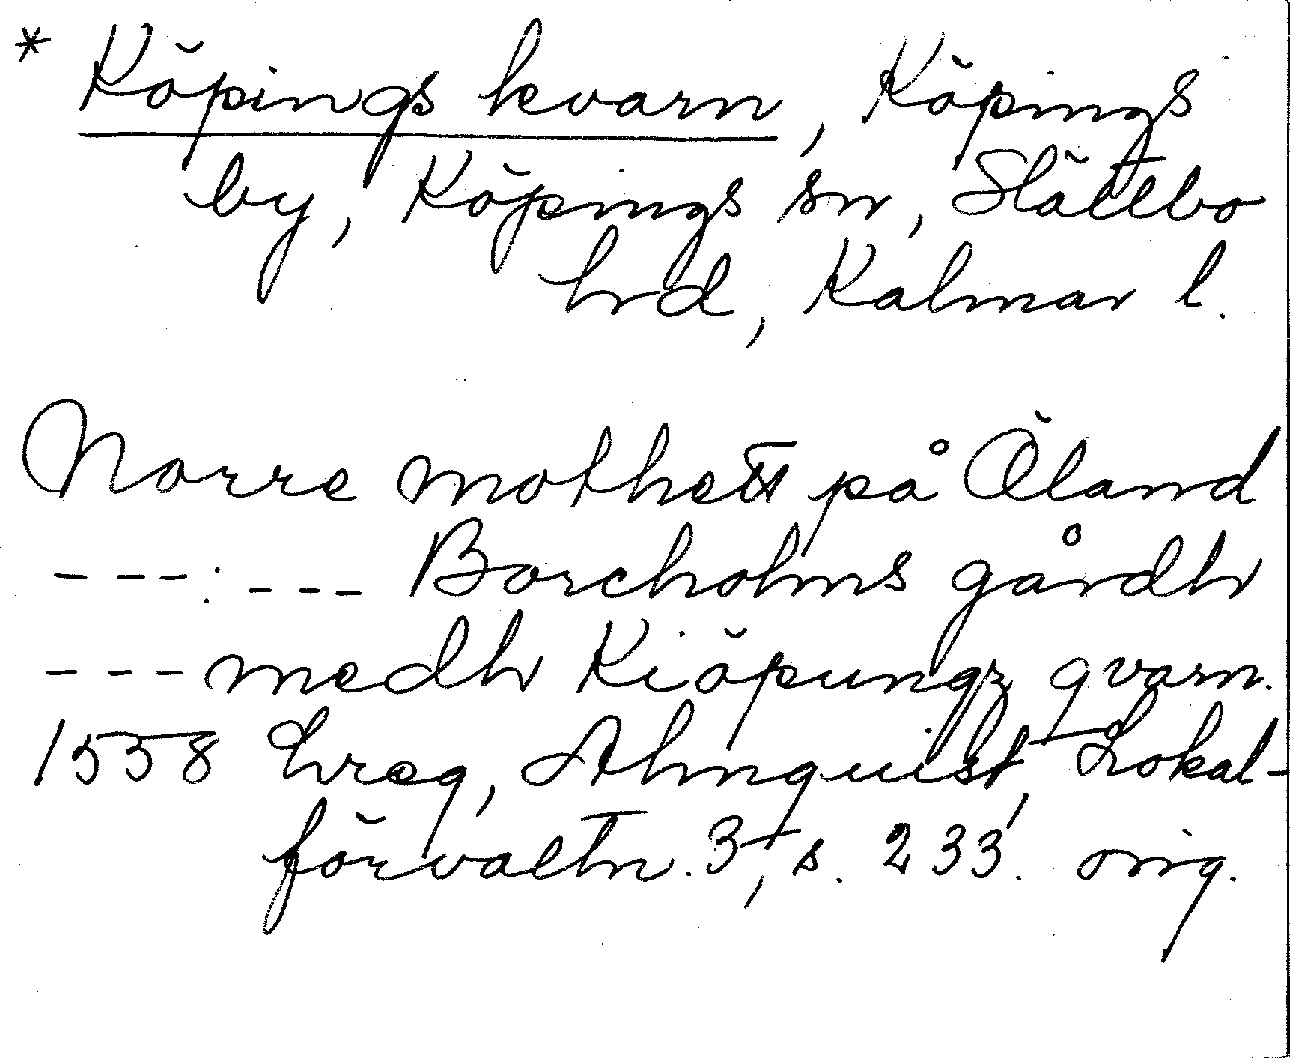 * Köpings kvarn, Köpings
by, Köpings sn, Slättbo
hrd, Kalmar l.
Norre mothett på Öland
---:--- Borcholms gårdh
---medh Kiöpungz qvarn.
1558 hreg, Almquist, Lokal-
förvaltn. 3, s. 233. orig.